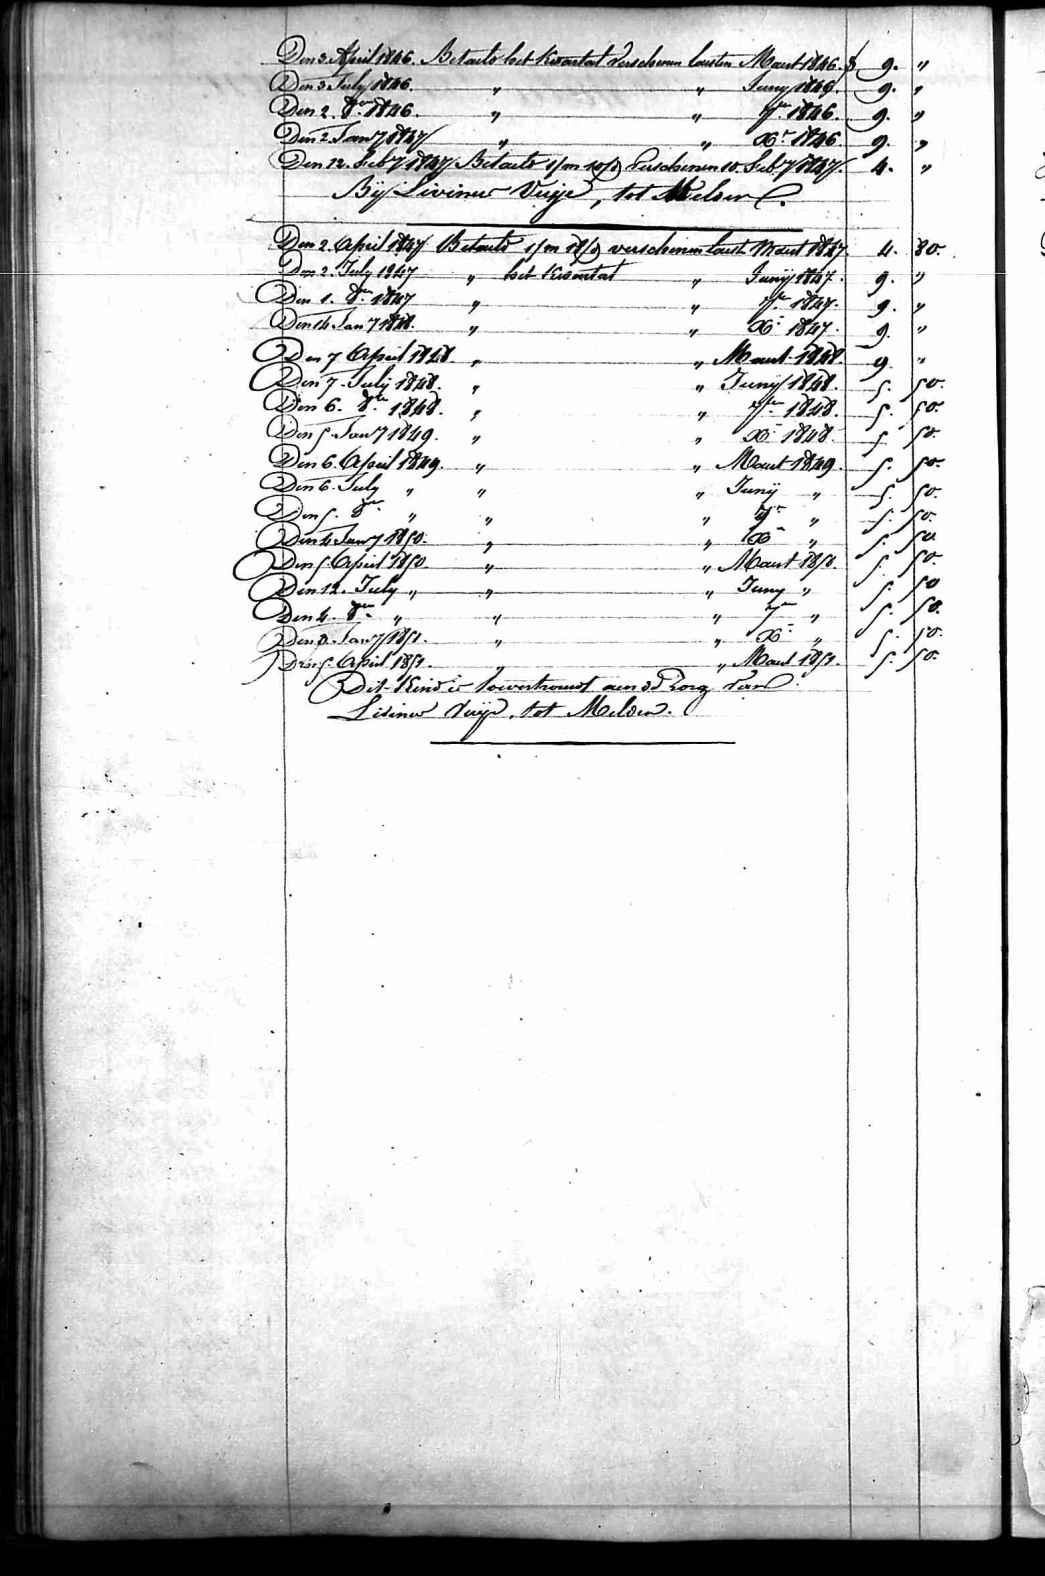 Den 3. April 1846. Betaelt het Kwartat verschenen laesten Maert 1846. f 9. "
Den 3 July 1846. " " Juny 1846. 9. "
Den 2. 8er 1846. " " 7er 1846. 9. "
Den 2 Jany 1847 " " Xr 1846. 9. "
Den 12. Feby 1847 Betaelt 1/m 10/d verschenen 10 Feby 1847. 4. "
Bij Livinus Vuije, tot Melden.
Den 2. April 1847 Betaelt 1/m 18/d verschenen laest Maert 1847 4. 80.
Den 2. July 1847 " het Kwartat " Junij 1847. 9. "
Den 1. 8er 1847 " " 7er 1847. 9. "
Den 14 Jany 1848. " " Xr 1847. 9. "
Den 7 April 1848. " " Maert 1848. 9 "
Den 7. July 1848. " " Junij 1848. 5. 50.
Den 6. 8er 1848. " " 7er 1848. 5. 50.
Den 5 Jany 1849. " " Xr 1848. 5 50.
Den 6. April 1849. " " Maert 1849. 5. 50.
Den 6. July " " " Junij " 5. 50.
Den 5. 8er " " " 7r " 5. 50.
Den 4 Jany 1850. " " Xr " 5. 50
Den 5. April 1850. " " Maert 1850. 5. 50.
Den 12. July " " " Juny " 5. 50
Den 4. 8er " " " 7er " 5. 50.
Den 8. Jany 1851. " " Xr " 5. 50.
Den 5. April 1851. " " Maert 1851. 5. 50.
Dit Kind is toevertrouwt aen de Zorg van
Livinus Vuije, tot Melden.